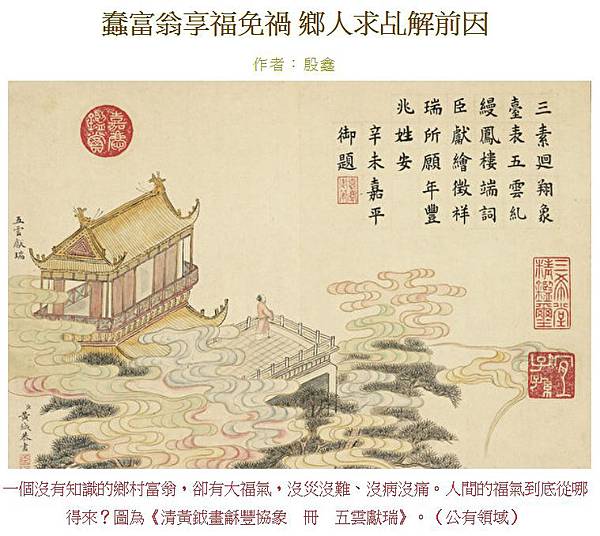 蠢富翁享福免禍 鄉人求乩解前因
作者：殷鑫
三素迴翔象
臺表五雲糺
縵鳳樓端詞
臣獻繪徵祥
瑞所願年豐
兆姓安
辛未嘉平
御題
嘉慶鑑賞
三希堂精鑑璽
宜子孫
五雲獻瑞
臣黃鉞恭畫
一個沒有知識的鄉村富翁，卻有大福氣，沒災沒難、沒病沒痛。人間的福氣到底從哪
得來？圖為《清黃鉞畫龢豐協象　冊　五雲獻瑞》。（公有領域）